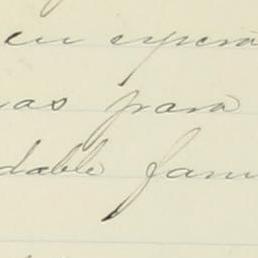 en espera
as para
dable fam